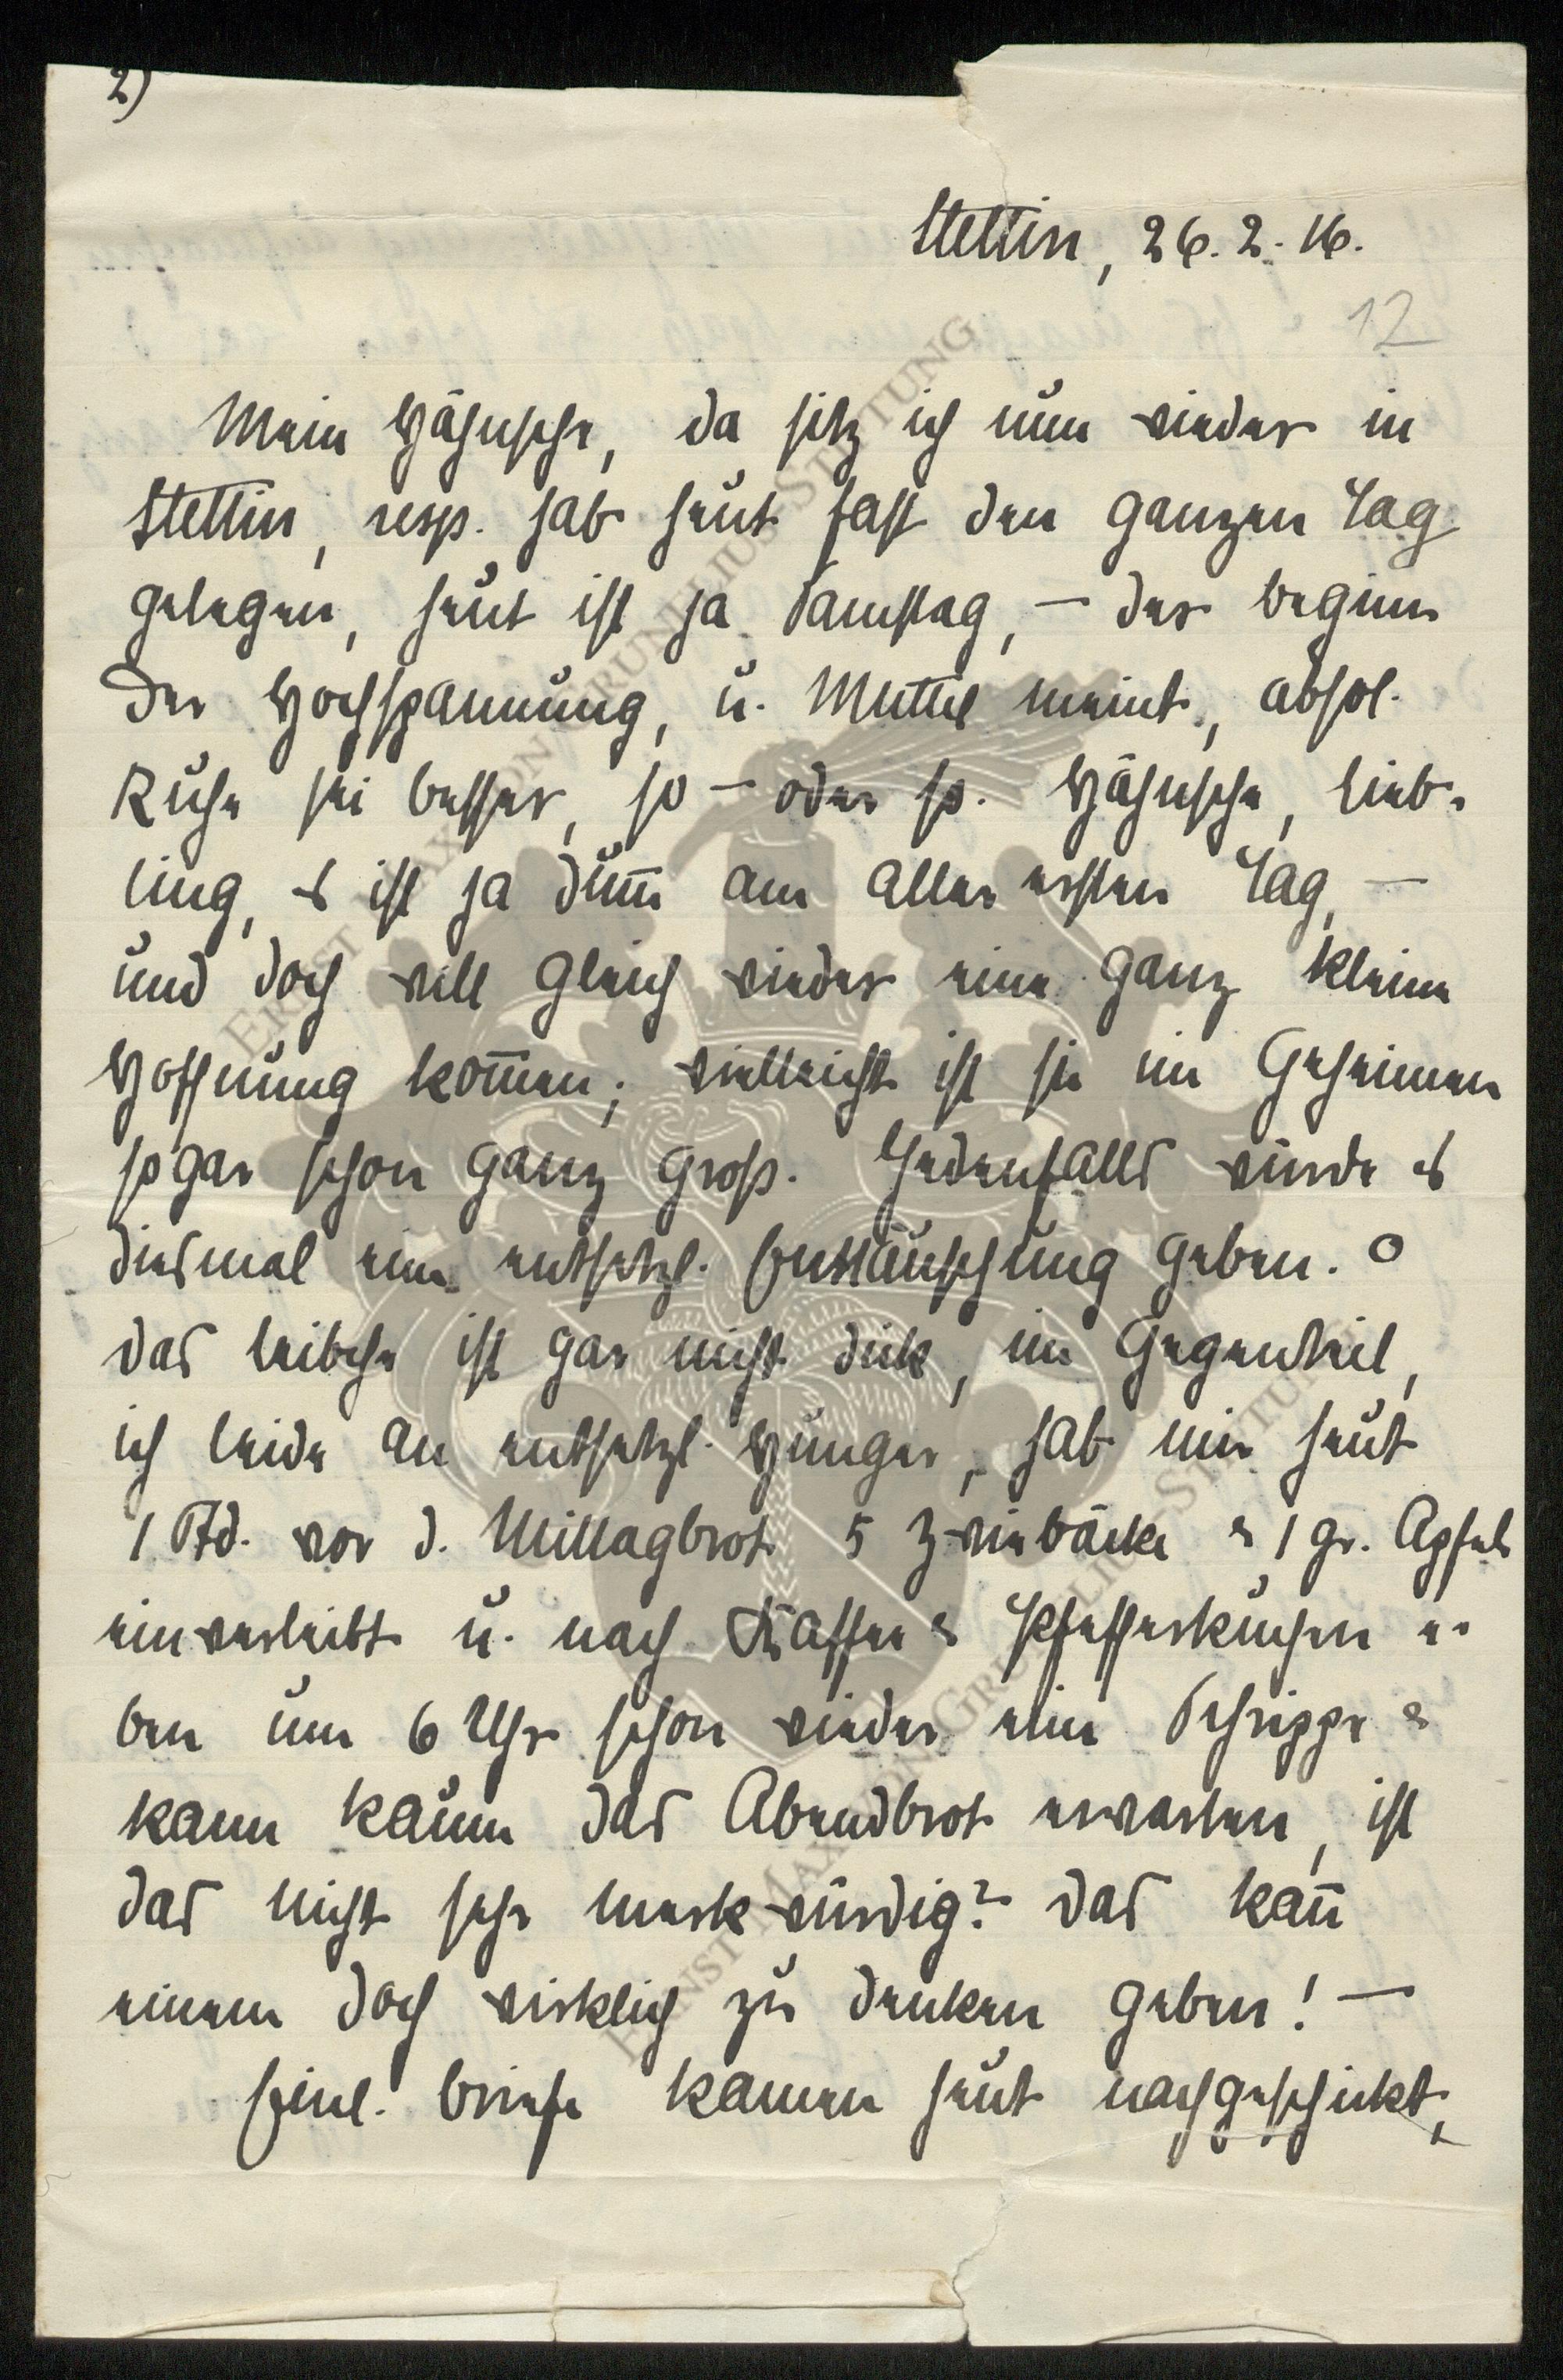 2)
Stettin, 26. 2. 16.
12
Mein Hähnsche, da sitz ich nun wieder in
Stettin, resp. hab heut fast den ganzen Tag
gelegen, heut ist ja Samstag, – der beginn
der Hochspannung, u. Muttel meint, absol.
Ruhe sei besser, so – oder so. Hähnsche, lieb-
ling, es ist ja dum̅ am aller ersten Tag, –
und doch will gleich wieder eine ganz kleine
Hoffnung kom̅en; vielleicht ist sie im Geheimen
sogar schon ganz gross. Jedenfalls würde es
diesmal eine entsetzl. Enttäuschung geben. O
das leibche ist gar nicht dick, im Gegenteil,
ich leide an entsetzl. Hunger, hab mir heut
1 Std. vor d. Mittagbrot 5 Zwiebäcke & 1 gr. Apfel
einverleibt u. nach Kaffee & Pfefferkuchen e-
ben um 6 Uhr schon wieder eine Schrippe &
kann kaum das Abendbrot erwarten, ist
das nicht sehr merkwürdig? das kan̅
einem doch wirklich zu denken geben! –
briefe kamen heut nachgeschickt,
ERNST MAX VON GRUNELIUS-STIFTUNG
ERNST MAX VON GRUNELIUS-STIFTUNG